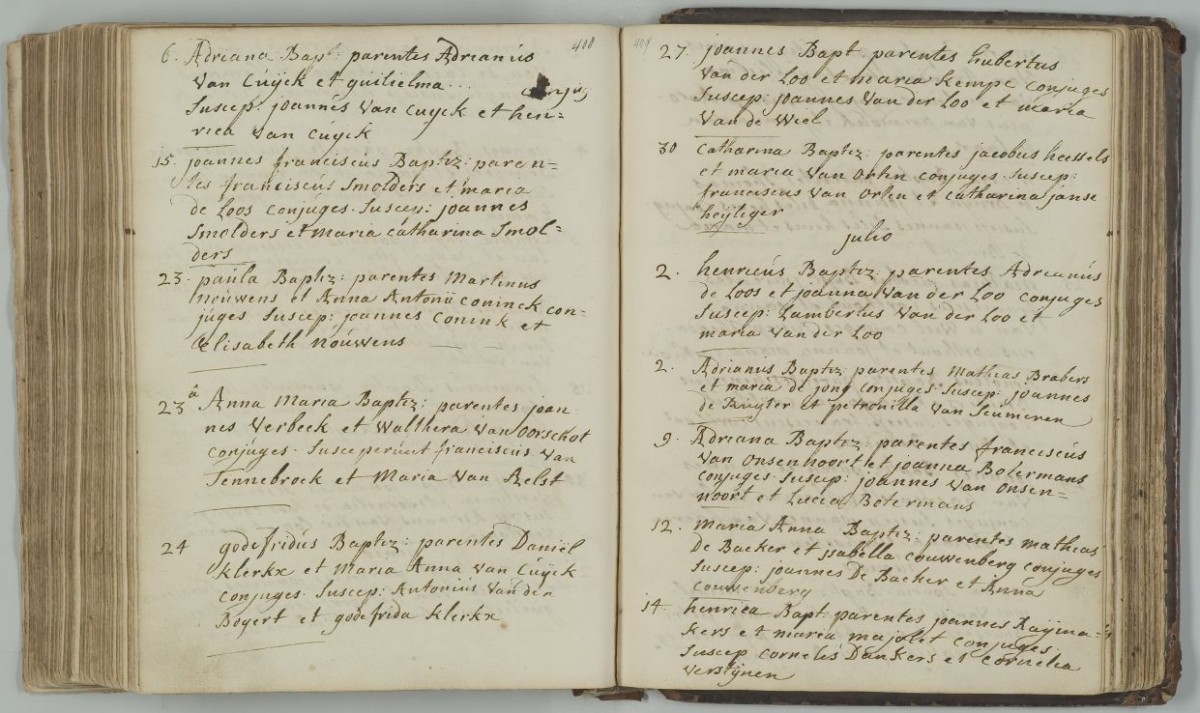 408
6. Adriana Bapt: parentes Adrianús
van Cúÿck et guilielma... conjug
Suscep: joannes van Cuyck et hen=
rica van Cúyck
15. joannes franciscús Baptiz: paren-
tes franciscús Smolders et maria
de Loos conjúges. Suscep: joannes
Smolders et Maria catharina Smol=
ders
23. paúla Baptiz: parentes Martinus
neúwens et Anna Antonii coninck con=
júges Suscep: joannes Conink et
Elisabeth noúwens
23â Anna Maria Baptiz: parentes joan
nes Verbeek et Walthera van Oorschot
conjúges. Susceperúnt franciscus van
Tennebroek et Maria van Relst
24 godefridús Baptiz: parentes Daniël
Klerkx et Maria Anna van Cúÿck
conjuges. Suscep: Antoniús van den
Bogert et godefrida Klerkx
409
27. joannes Bapt parentes hubertus
van der Loo et maria Kempe conjuges
Suscep: joannes van der Loo et maria
van de Wiel
30 Catharina Baptiz: parentes jacobus heessels
et maria van Orten conjuges. Suscep:
franciscus van Orten et catharina janse
heijliger
julio
2. henricús Baptiz: parentes Adrianús
de Loos et joanna van der Loo conjuges
Suscep: Lambertus van der Loo et
maria van der Loo
2. Adrianus Baptiz parentes Mathias Brabers
et maria de jong conjuges Suscep: joannes
de Ruyter et petronilla van Seumeren
9. Adriana Baptiz: parentes franciscús
van Onsenoort et joanna Botermans
conjuges. Suscep: joannes van Onsen=
noort et Lucia Botermans
12. Maria Anna Baptiz: parentes mathias
De Backer et ysabella couwenberg conjuges
Suscep: joannes De Backer et Anna
couwenberg
14. henrica Bapt: parentes joannes Raÿma=
kers et maria majolet conjuges.
Suscep cornelis Dankers et cornelia
verstijnen